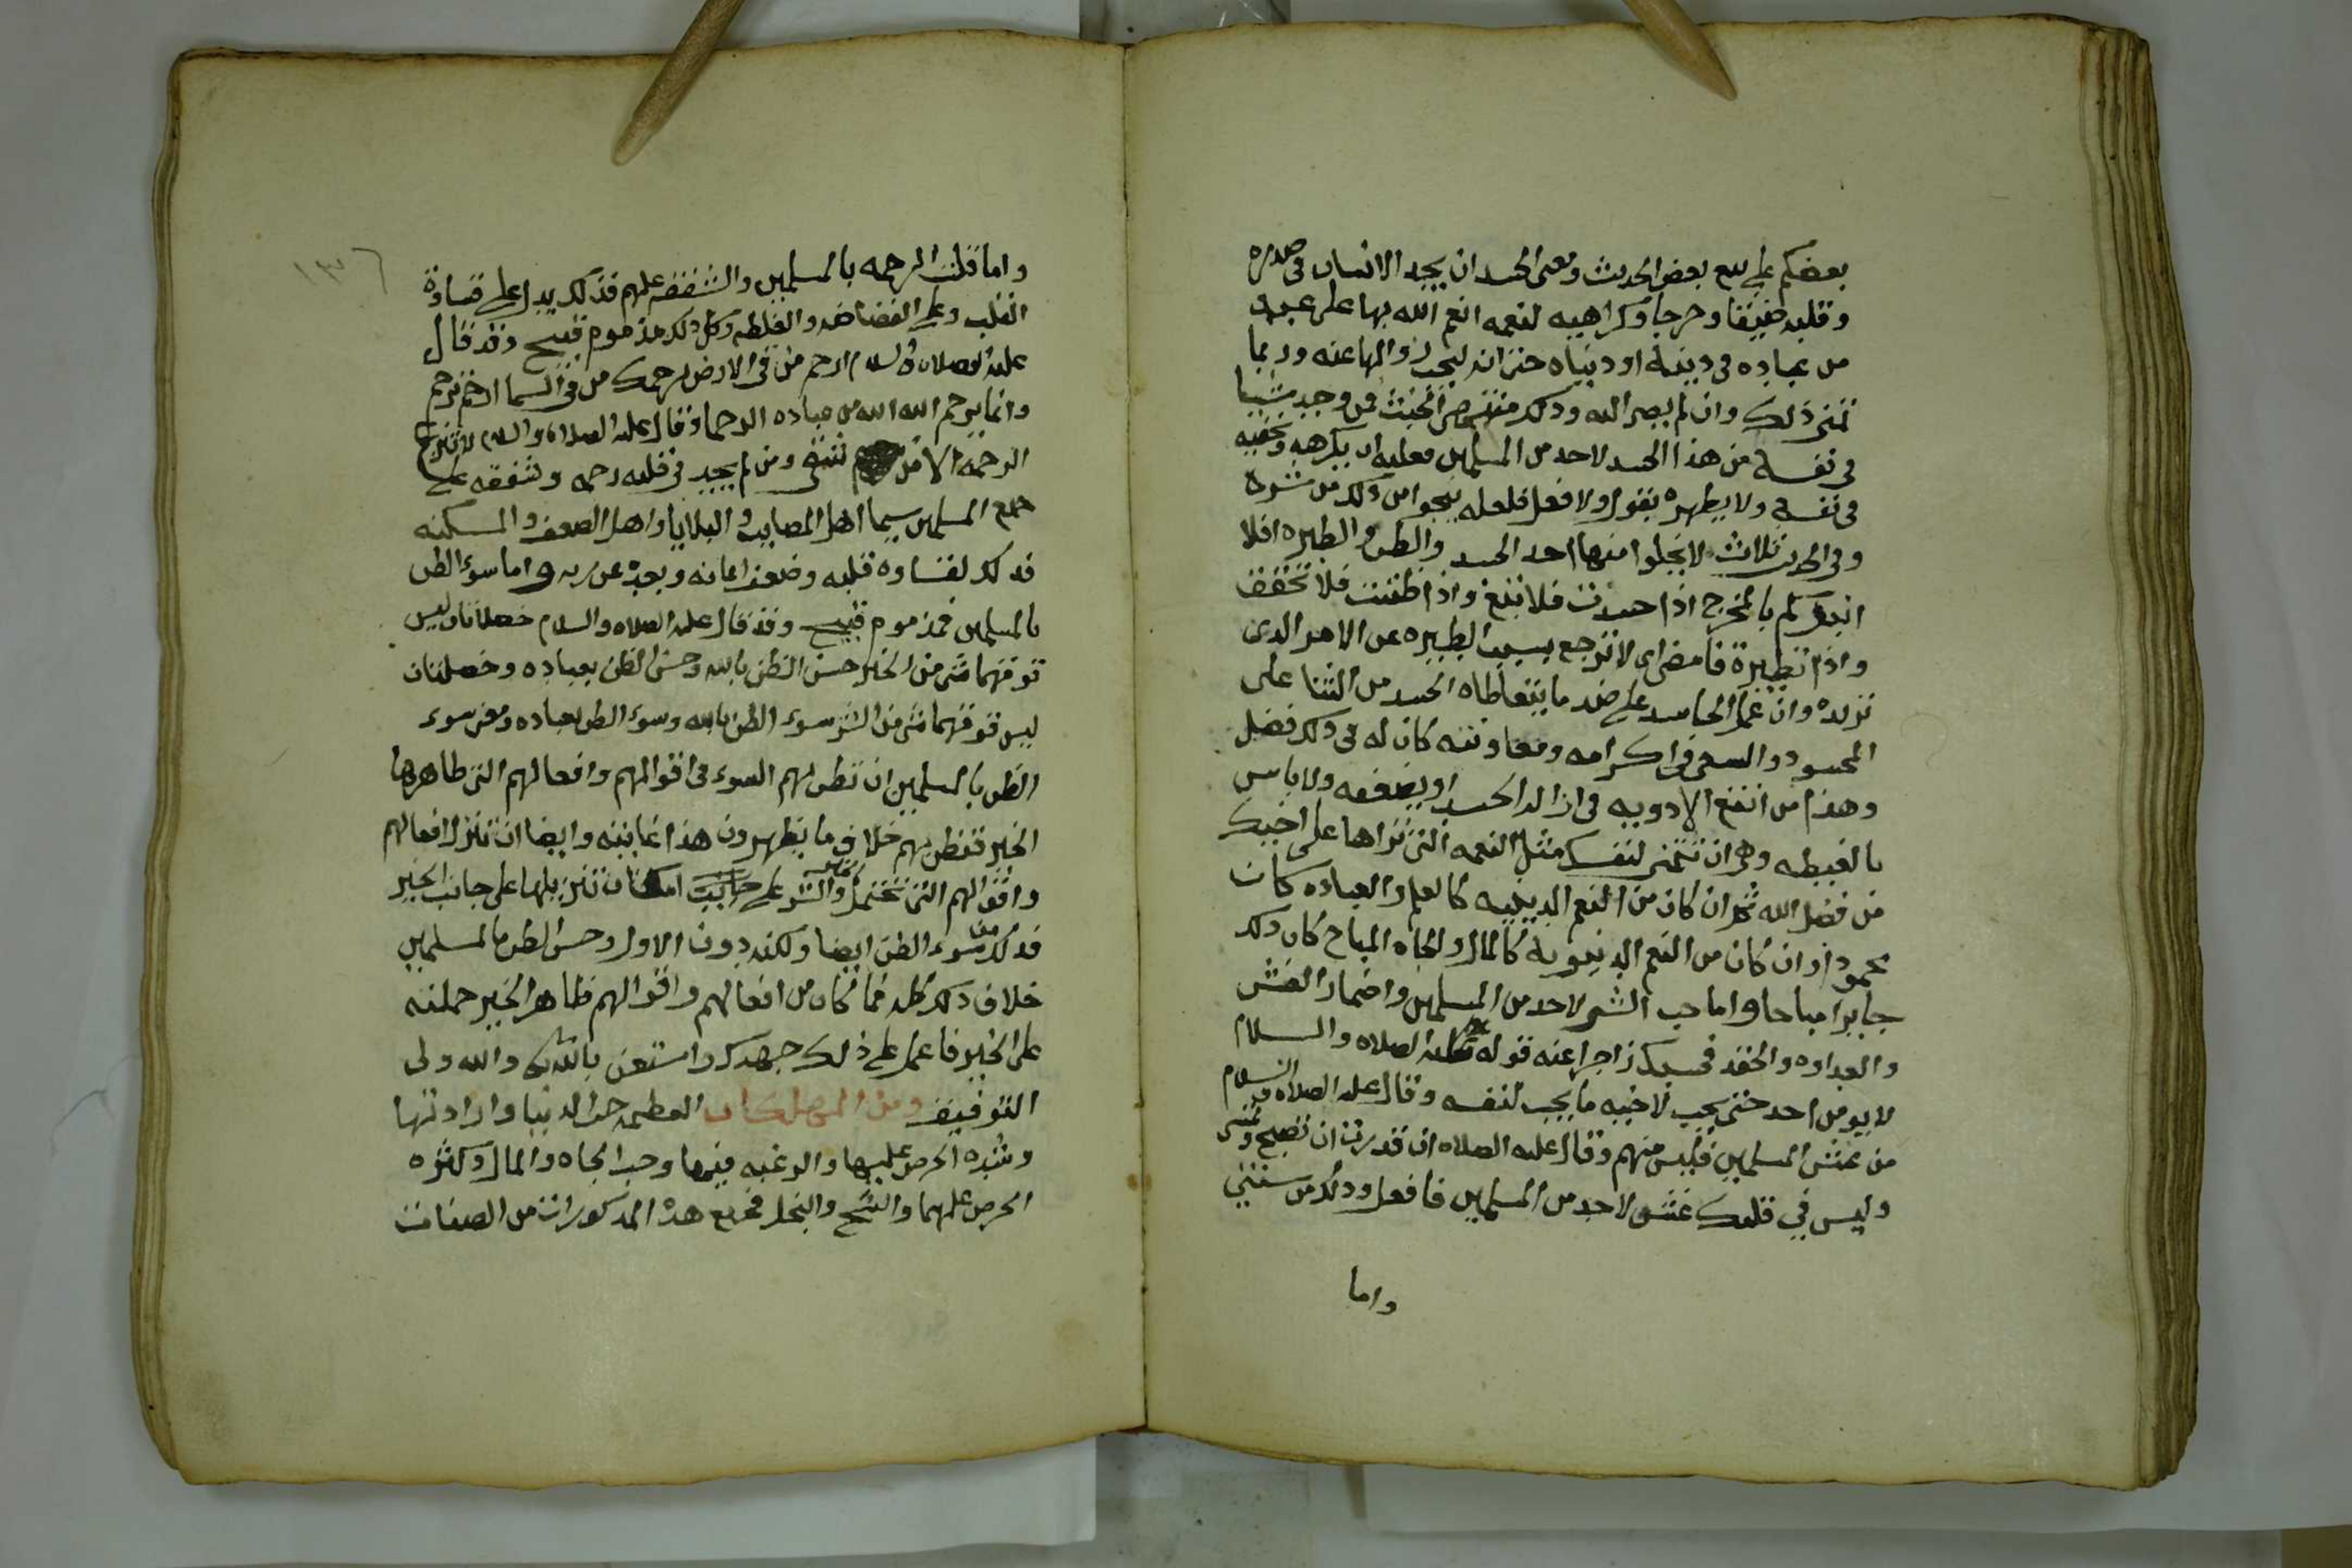 بعضكم على بيع بعض الحديث ومعنى الحسد ان يجد الانسان في صدره
وقلبه ضيقا وحرجا وكراهيه لنعمه انعم الله بها على عبد
من عباده في دينه او دنياه حتى انه ليحب زوالها عنه وربما
تمنى ذلك وان لم يصر اليه وذلك منتهى الخبث فمن وجد شيا
في نفسه من هذا الحسد لاحد من المسلمين فعليه ان يكرهه ويخفيه
في نفسه ولا يظهره بقول ولا فعل فلعله ينجوا من ذلك من شره
وفي الحديث ثلاث لا يخلوا منها احد الحسد والظن والطيره افلا
انبؤكم بالمخرج اذا حسدت فلا تبغ واذا ظننت فلا تحقق
واذا تطيرة فامض اى لا ترجع بسبب الطيره عن الامر الذى
تريده وان عمل الحاسد على ضد ما يتعاطاه الحسد من الثنا على
المحسود والسعى في اكرامه ومعاونته كان له في ذلك فضل
وهذا من انفع الادويه في ازاله الحسد او يضعفه ولا باس
بالغبطه وهى ان تتمنى لنفسك مثل النعمه التى تراها على اخيك
من فضل الله ثم ان كان من النعم الدينيه كالعلم والعباده كان
محمودا وان كان من النعم الدنيويه كالمال والجاه المباح كان ذلك
جايزا مباحا واما حب الشر لاحد من المسلمين واضمار الغش
والعداوه والحقد فحسبك زاجرا عنه قوله عليه الصلاه والسلام
لا يومن احد حتى يحب لاخيه ما يحب لنفسه وقال عليه الصلاه والسلام
من غش المسلمين فليس منهم وقال عليه الصلاه ان قدرت ان تصبح وتمسى
وليس في قلبك غش لاحد من المسلمين فافعل وذلك من سنتي
واما
١٣٦
واما قلت الرحمه بالمسلمين والشفقه عليهم فذلك يدل على قساوة
القلب وعلى الفضاضه والغلظه وكل ذلك مذموم قبيح وقد قال
عليه الصلاه والسلام ارحم من في الارض يرحمك من في السما ارحم ترحم
وانما يرحم الله الله من عباده الرحما وقال عليه الصلاه والسلام لا تنزع
الرحمه الا من شقى ومن لم يجد في قلبه رحمه وشفقه على
جميع المسلمين سيما اهل المصايب والبلايا واهل الضعف والمسكنه
فذلك لقساوه قلبه وضعف ايمانه وبعده عن ربه واما سوء الظن
بالمسلمين فمذموم قبيح وقد قال عليه الصلاه والسلام خصلتان ليس
فوقهما شى من الخير حسن الظن بالله وحسن الظن بعباده وخصلتان
ليس فوقهما شى من الشر سوء الظن بالله وسوء الظن بعباده ومعنى سوء
الظن بالمسلمين ان تظن بهم السوء في اقوالهم وافعالهم التى ظاهرها
الخير فتظن بهم خلاف ما يظهرون هذا غايته وايضا ان تنزل افعالهم
واقوالهم التى تحتمل الخير والشر على جانب امكان تنزيلها على جانب الخير
فذلك من سوء الظن ايضا ولكنه دون الاول وحسن الظن بالمسلمين
خلاف ذلك كله فما كان من افعالهم واقوالهم ظاهر الخير حملته
على الخير فاعمل على ذلك جهدك واستعن بالله والله ولى
التوفيق ومن المهلكات العظيمه حب الدنيا وارادتها
وشده الحرص عليها والرغبه فيها وحب الجاه والمال وكثره
الحرص عليهما والشح والبخل فجميع هذه المذكورات من الصفات